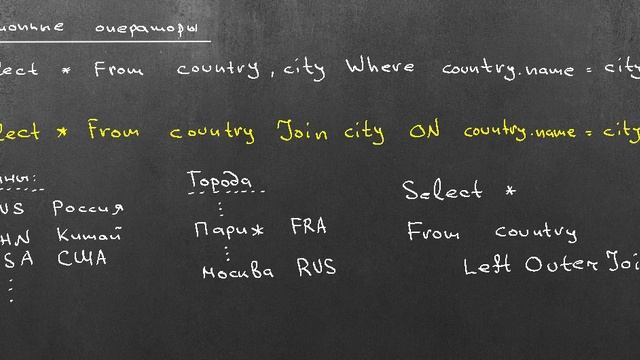 ионные операторы
lect * From country, city Where country.name = city
lect * From country Join city ON country.name = city
ны:
US Россия
HN Китай
SA США
Города
Париж FRA
Москва RUS
Select *
From country
Left Outer Joi